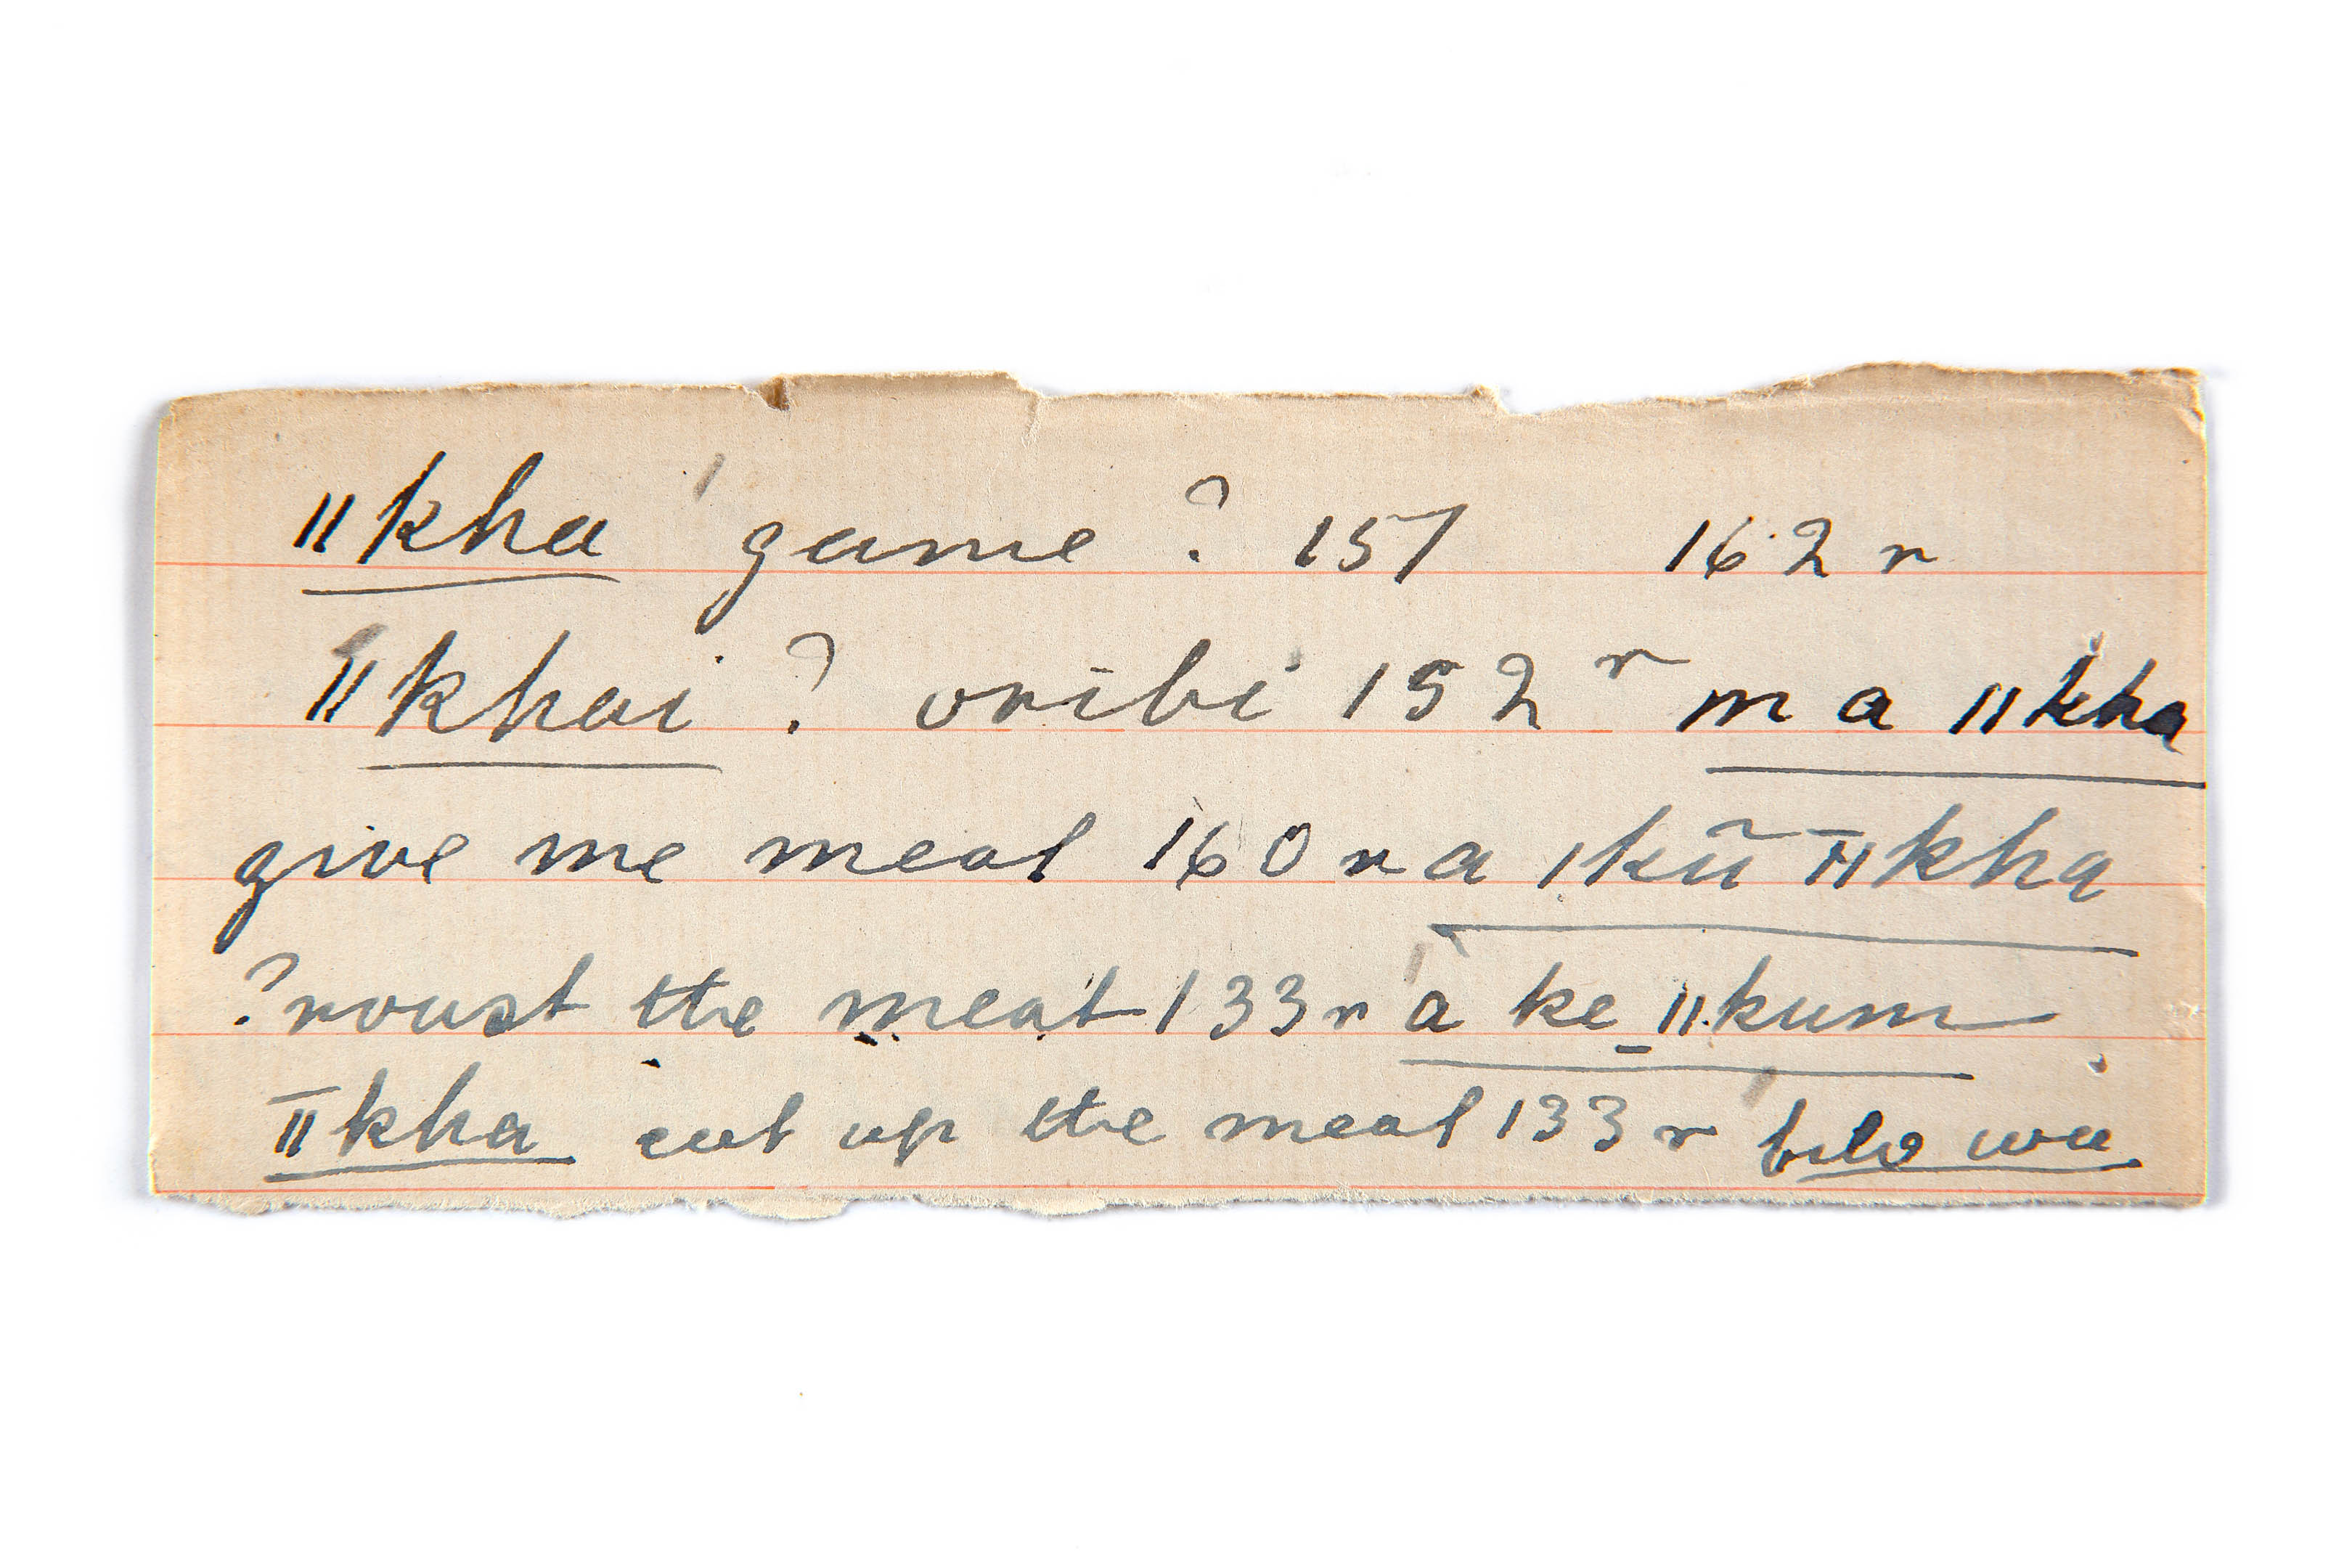 ǁkha game ? 157 162 r
ǁkhai ? oribi 152 r m a ǁkha
give me meat 160 r a ǀkũ ǁ̄kha
? roast the meat 133 r a ke ǁkum
ǁ̄kha cut up the meat 133 r